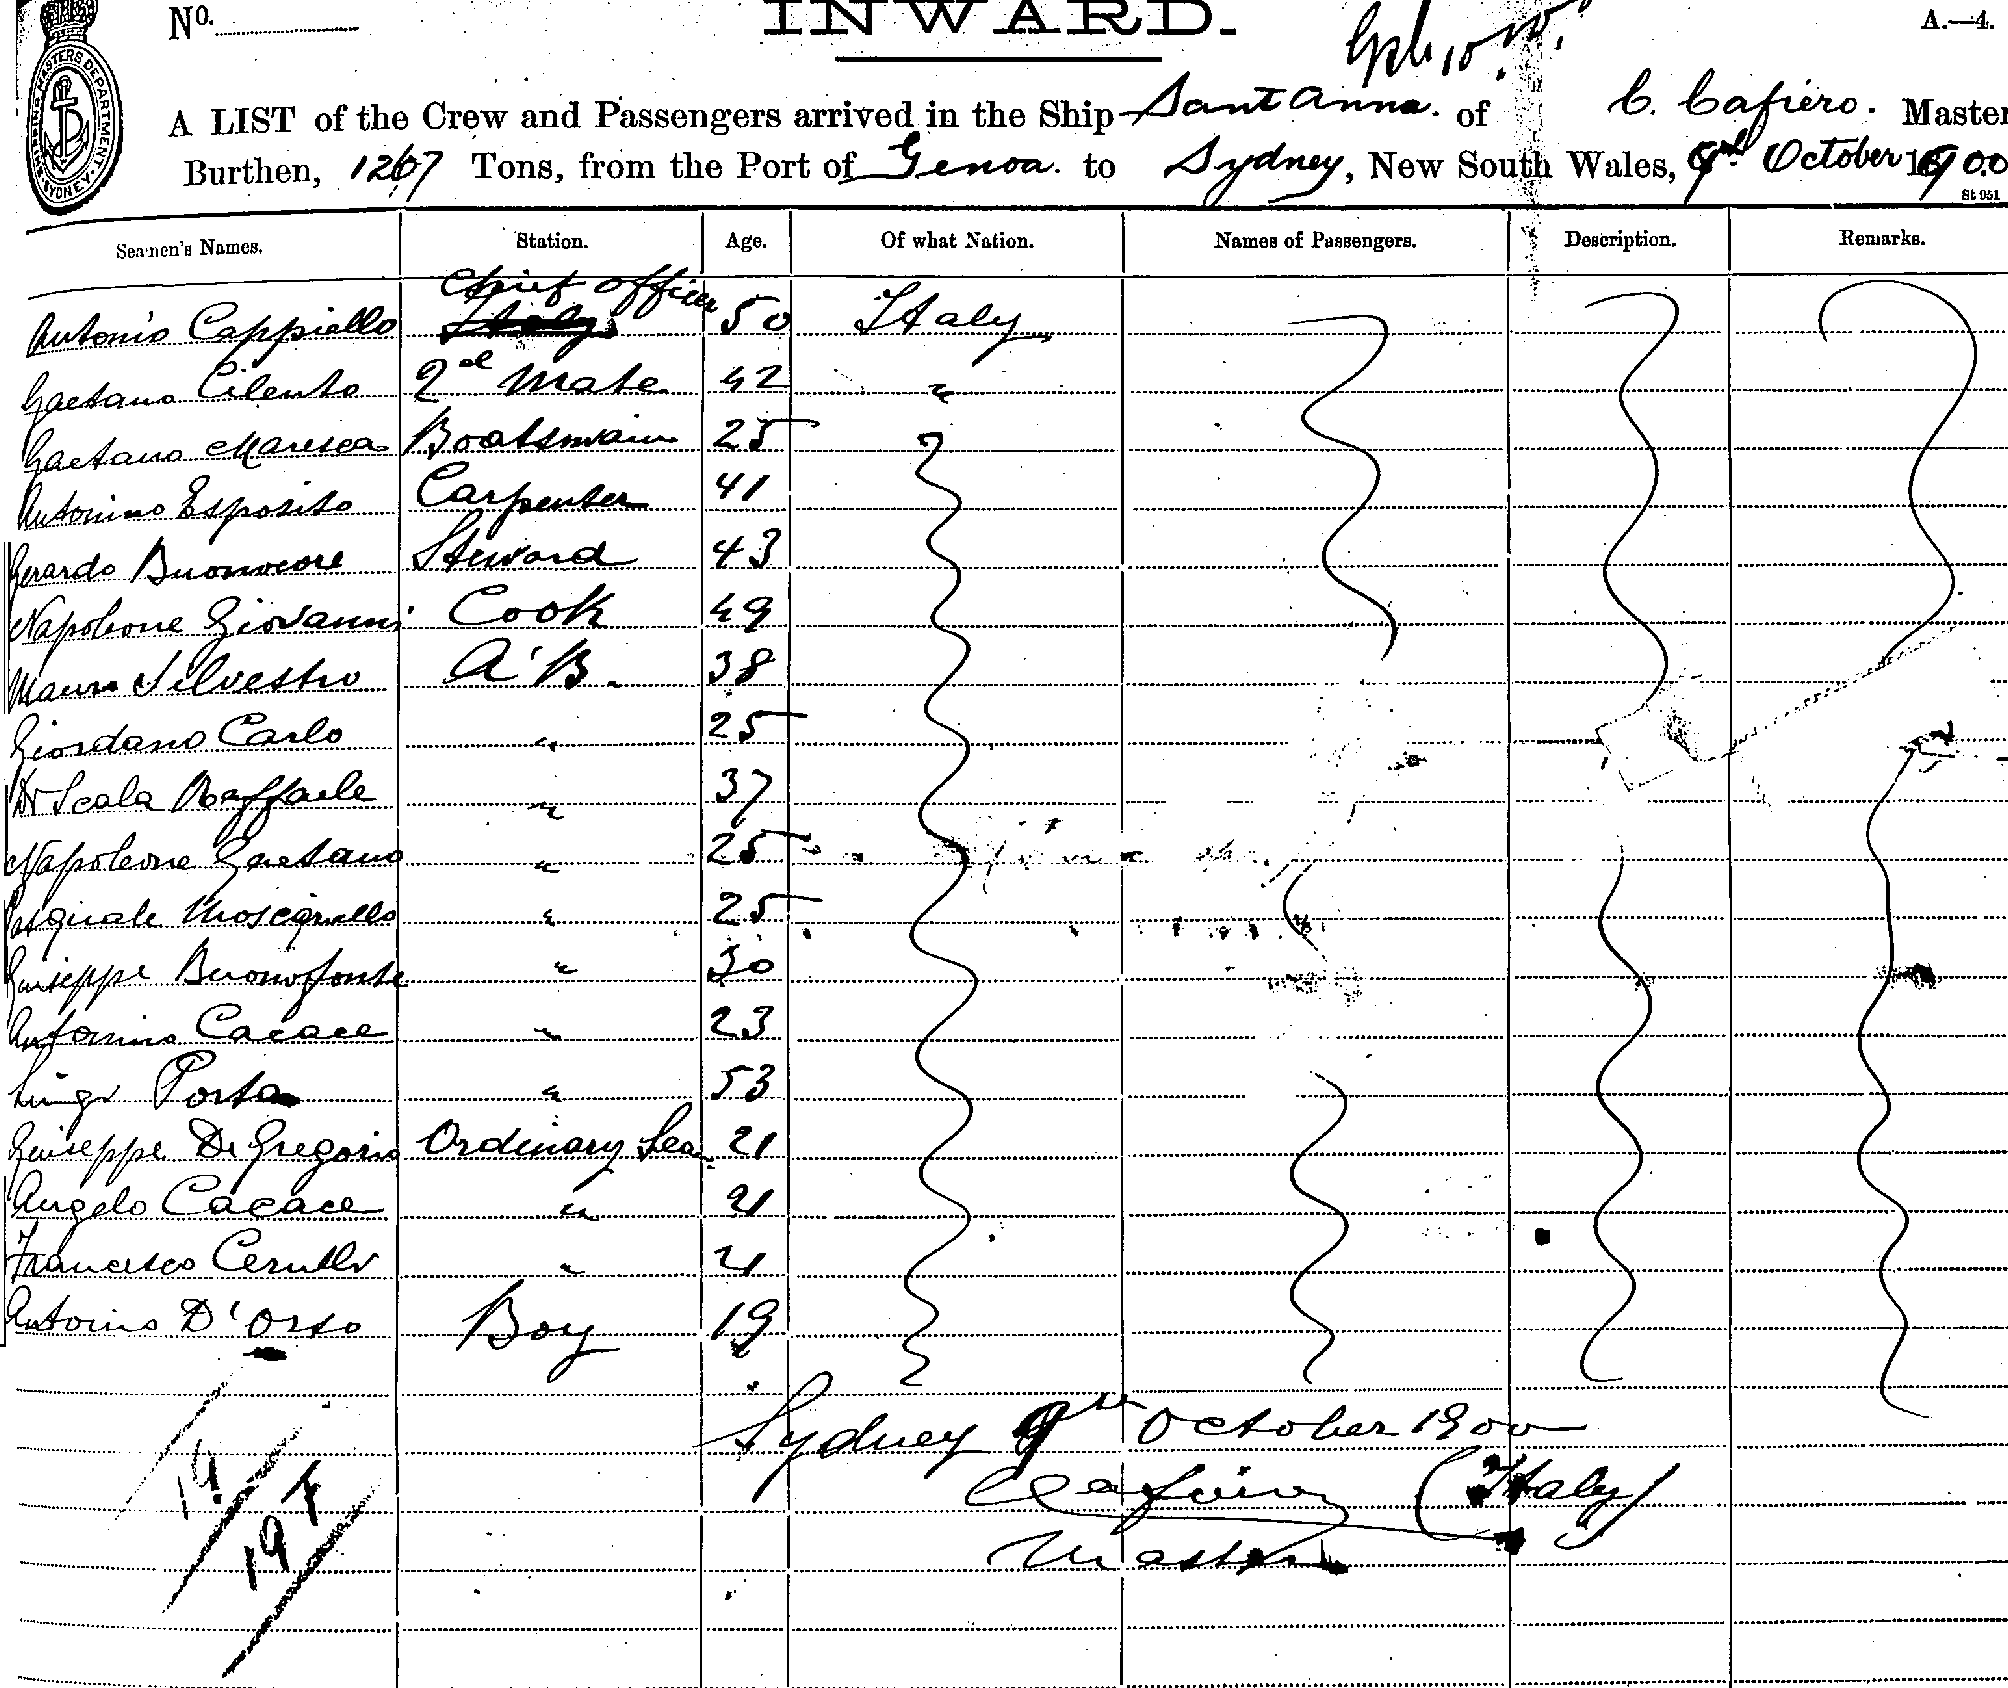 No.
INWARD.
A.—4.
A LIST of the Crew and Passengers arrived in the Ship Sant Anna. of C. Cafiero. Master
Burthen, 1267 Tons, from the Port of Genoa. to Sydney, New South Wales, October 1900
St 951
Seamen's Names. Station. Age. Of what Nation. Names of Passengers. Description. Remarks.
Chief Officer
Antonio Cappiello Italy 50 Italy
Gaetano Cilento 2nd Mate 42 "
Gaetano Maresca Boatswain 25
Antonino Esposito Carpenter 41
Gerardo Buonocore Steward 43
Napoleone Giovanni Cook 49
Mauro Silvestro A.B. 38
Giordano Carlo " 25
Di Scala Raffaele " 37
Napoleone Gaetano " 25
Pasquale " 25
Giuseppe Buonofonte " 30
Antonino Cacace " 23
Luigi Porta " 53
Giuseppe Di Gregorio Ordinary Sea 21
Angelo Cacace " 21
Francesco " 21
Antonino D'Orso Boy 19
Sydney 9th October 1900
Cafiero (Italy)
Master
19
19 7